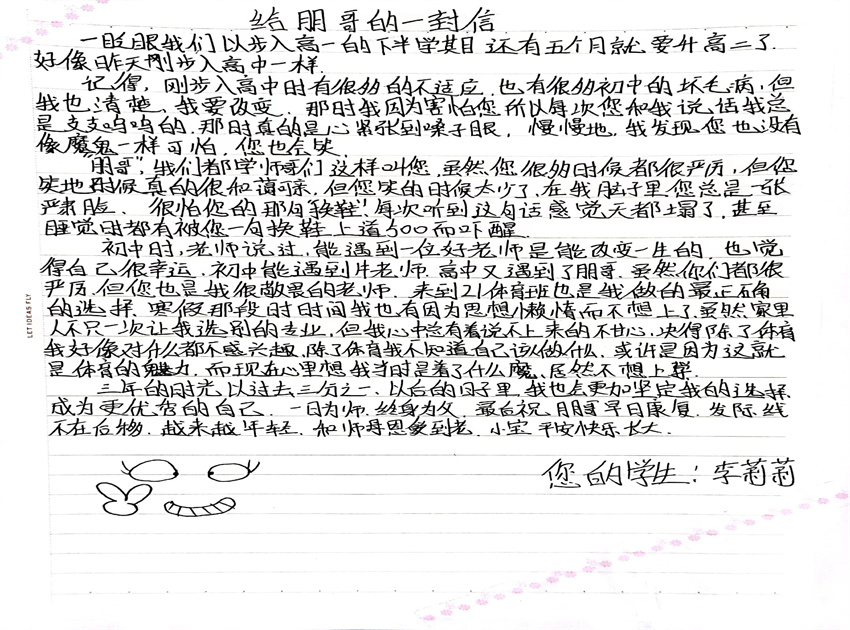 给朋哥的一封信
一眨眼我们以步入高一的下半学期 还有五个月就要升高二了.
好像昨天刚步入高中一样.
记得, 刚步入高中时有很多的不适应, 也有很多初中的坏毛病, 但
我也清楚, 我要改变. 那时我因为害怕您所以每次您和我说话我总
是支支吾吾的. 那时真的是心紧张到嗓子眼, 慢慢地, 我发现您也没有
像魔鬼一样可怕, 您也会笑.
"朋哥", 我们都学师哥们这样叫您, 虽然您很多时候都很严厉, 但您
笑地时候真的很和蔼可亲, 但您笑的时候太少了, 在我脑子里您总是一张
严肃脸. 很怕您的那句"换鞋", 每次听到这句话感觉天都塌了, 甚至
睡觉时都有被您一句换鞋上道300而吓醒.
初中时, 老师说过, 能遇到一位好老师是能改变一生的. 也觉
得自己很幸运. 初中能遇到片老师. 高中又遇到了朋哥. 虽然你们都很
严厉, 但您也是我很敬畏的老师. 来到21体育班也是我做的最正确
的选择. 寒假那段时时间我也有因为思想懒惰而不想上了. 虽然家里
人不只一次让我选别的专业, 但我心中总有着说不上来的不甘心. 决得除了体育
我好像对什么都不感兴趣. 除了体育我不知道自己该做什么. 或许是因为这就
是体育的魅力. 而现在心里想我当时是着了什么魔, 居然不想上䊨.
三年的时光以过去三分之一. 以后的日子里, 我也会更加坚定我的选择,
成为更优秀的自己. 一日为师. 终身为父. 最后祝 朋哥早日康复. 发际线
不在后移. 越来越年轻. 和师母恩爱到老. 小宝平安快乐长大.
您的学生: 李莉莉
LET IDEAS FLY